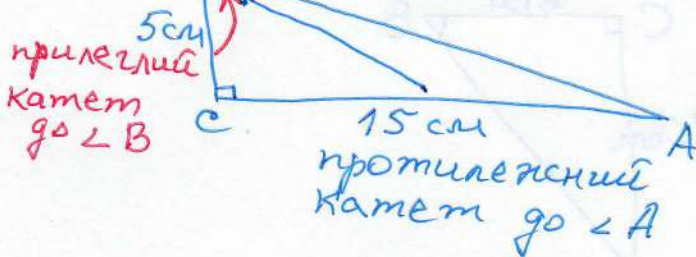 5см
прилеглий
катет
до ∠ B
C
15 см
A
протилежний
катет до ∠ A